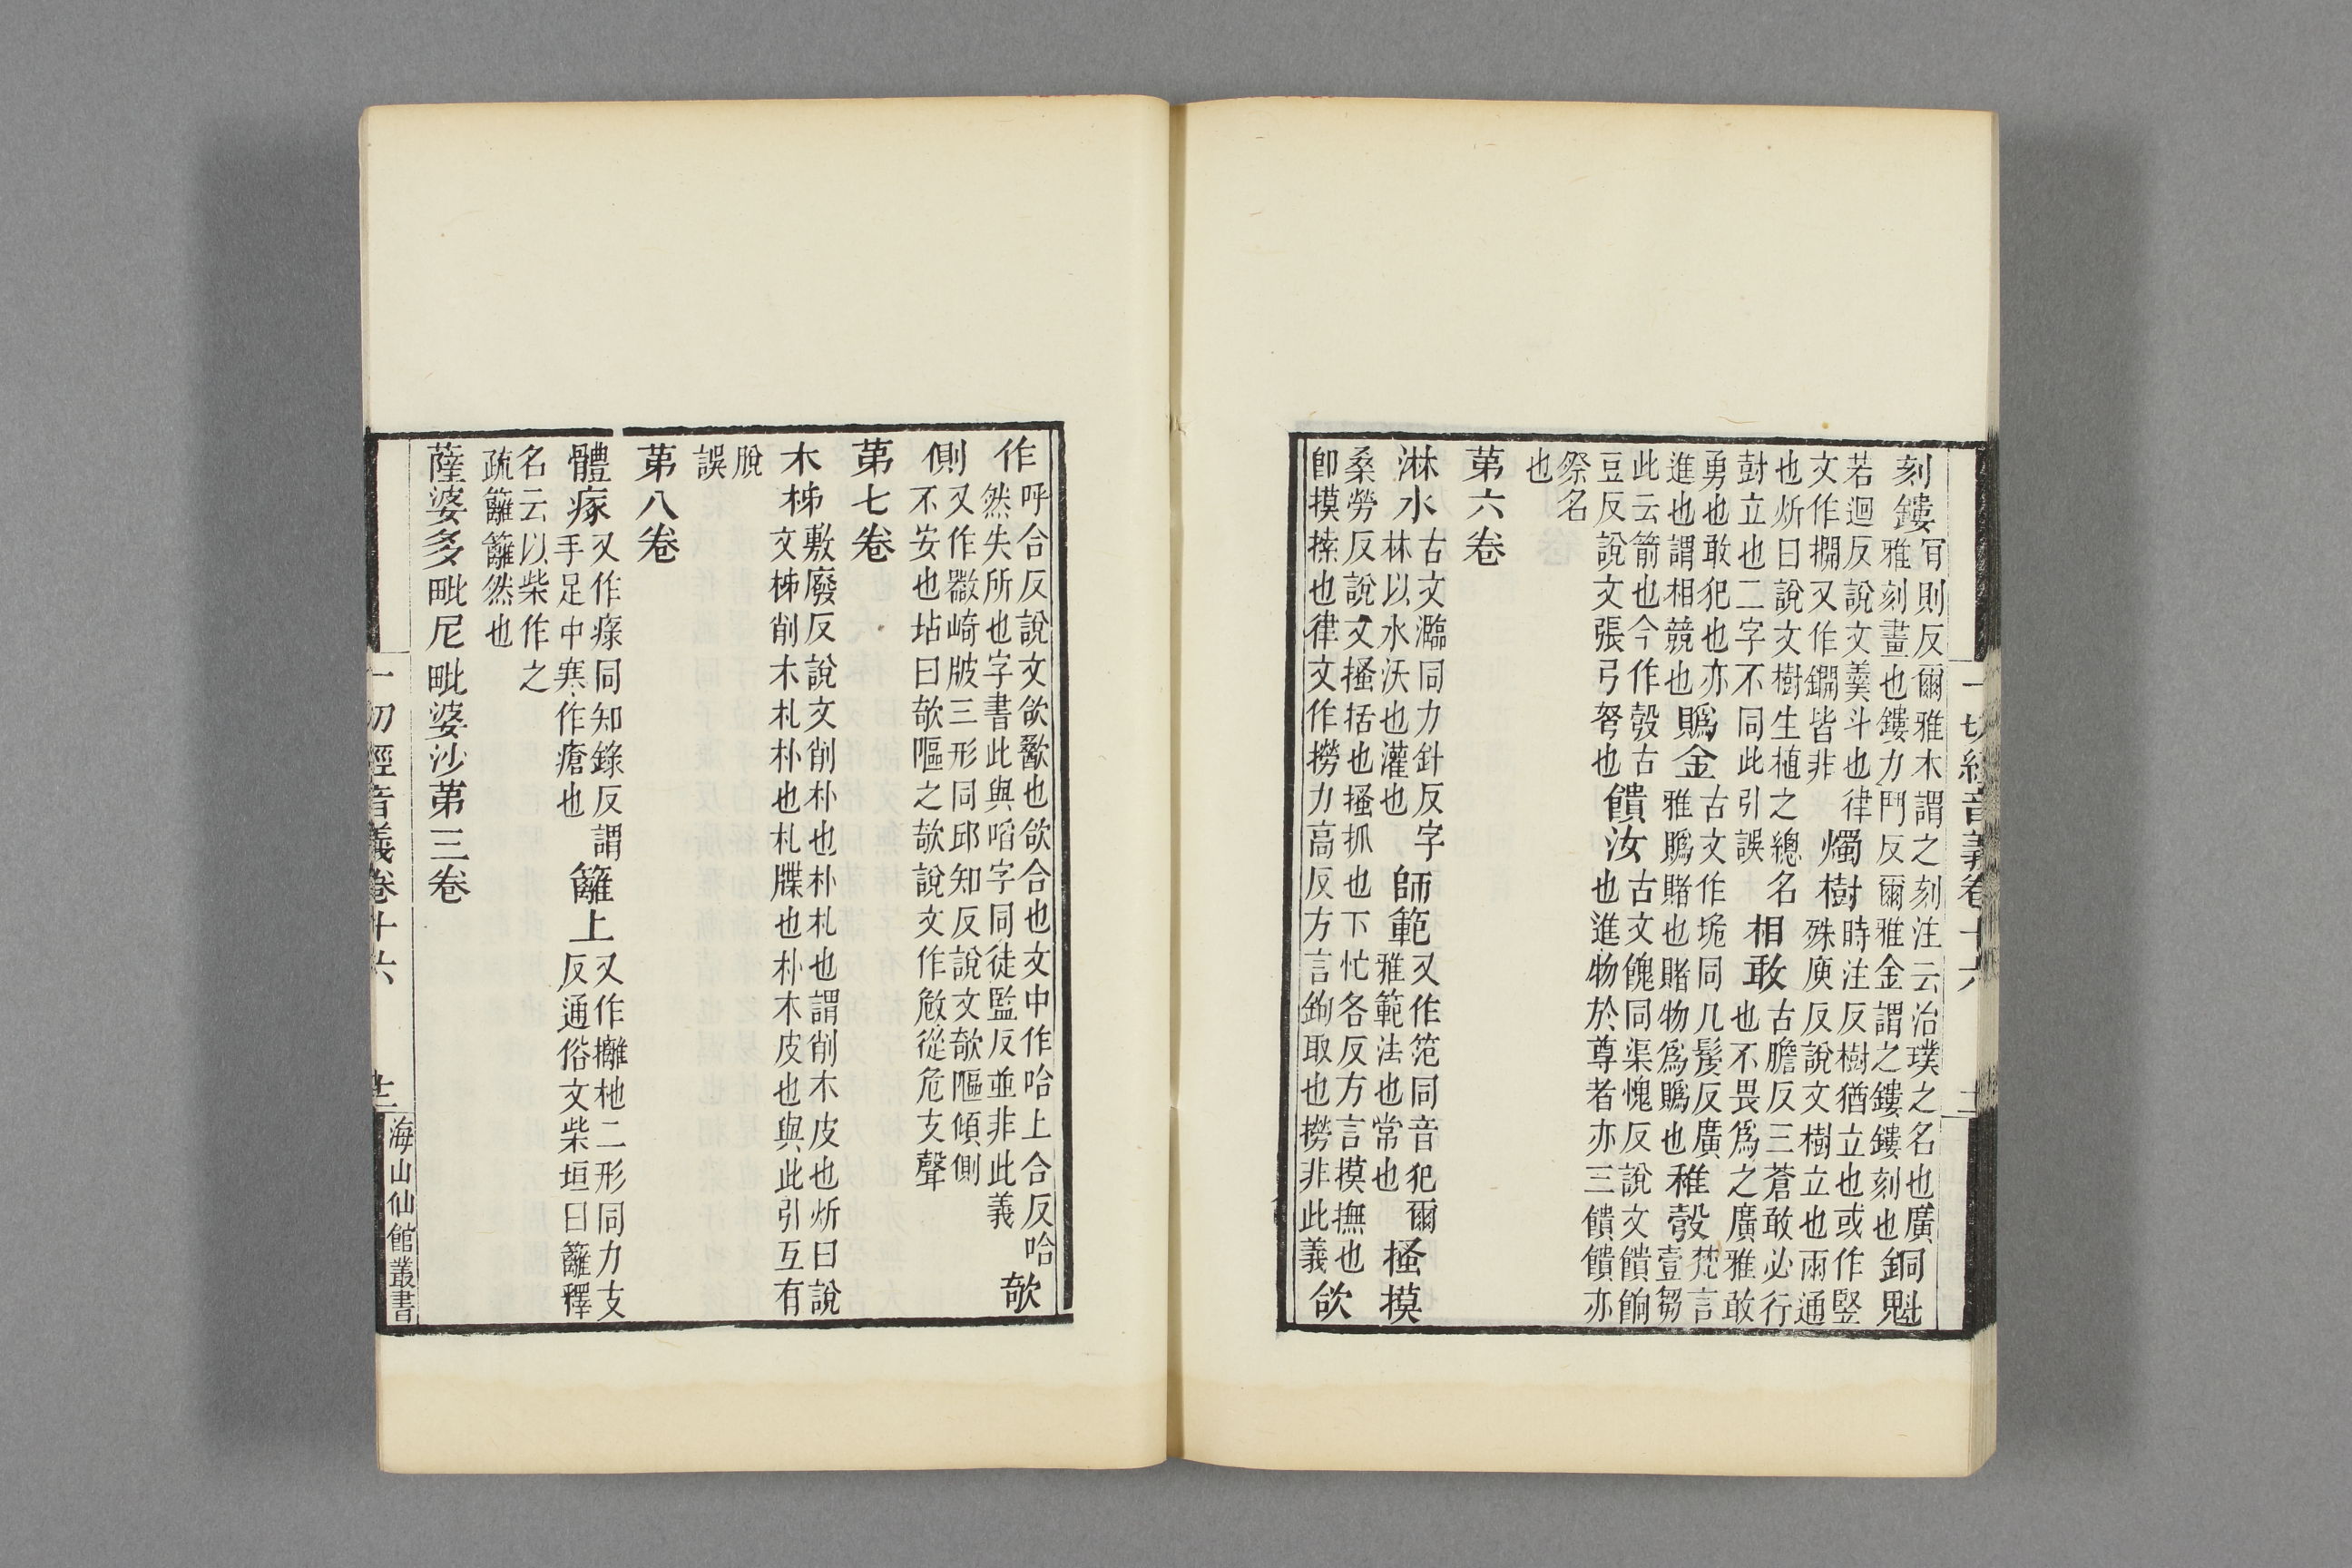 一切經音義卷十六
刻鏤肎則反爾雅木謂之刻注云治璞之名也廣
雅刻畫也鏤力鬥反爾雅金謂之鏤鏤刻也銅魁
若迴反說文羹斗也律
文作㭻又作鐗皆非燭樹時注反樹猶立也或作竪
殊庾反說文樹立也兩通
也炘曰說文樹生植之總名
尌立也二字不同此引誤相敢古膽反三蒼敢必行
也不畏爲之廣雅敢
勇也敢犯也亦
進也謂相競也賭金古文作垝同几髲反廣
雅賭賭也賭物爲賭也稚㝅梵言
壹芻
此云箭也今作㝅古
豆反說文張弓弩也饋汝古文餽同渠愧反說文饋餉
也進物於尊者亦三饋饋亦
祭名
也
第六卷
淋水古文灆同力針反字
林以水沃也灌也師範又作笵同音犯爾
雅範法也常也搔摸
桑勞反說文搔括也搔抓也下忙各反方言摸撫也
卽摸㨞也律文作撈力高反方言鉤取也撈非此義欱
作呼合反說文欱歠也欱合也文中作哈上合反哈
然失所也字書此與㗖字同徒監反並非此義㩻
側又作㩻崎㱟三形同邱知反說文㩻䧢傾側
不安也坫曰㩻䧢之㩻說文作㩻從危支聲
第七卷
木柹敷廢反說文削朴也朴札也謂削木皮也炘曰說
文柹削木札朴也札牒也朴木皮也與此引互有
脫
誤
第八卷
體瘃又作瘃同知錄反謂
手足中寒作瘡也籬上又作㰚杝二形同力支
反通俗文柴垣曰籬釋
名云以柴作之
疏籬籬然也
薩婆多毗尼毗婆沙第三卷
一切經音義卷十六
海山仙館叢書